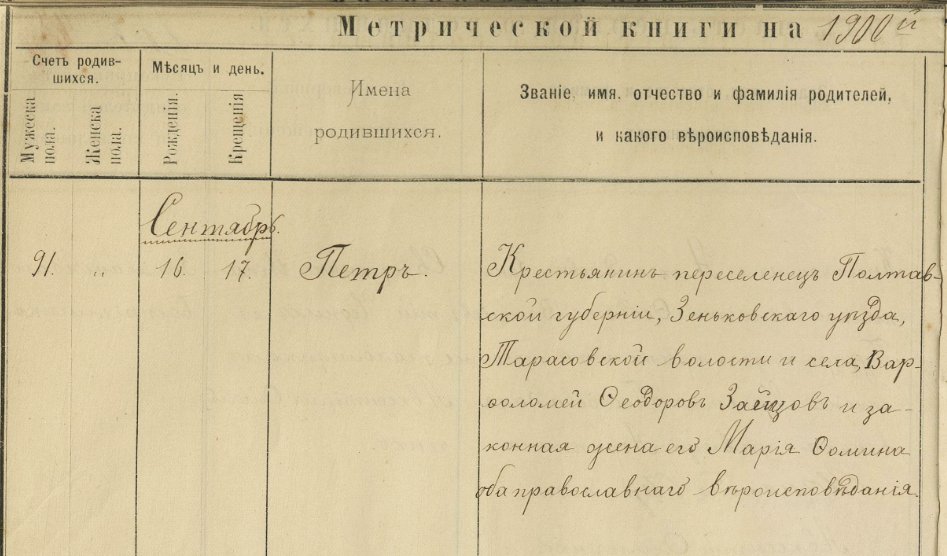 Метрической книги на 1900й
Счетъ родив-
шихся.
Мужеска
пола.
Женска
пола.
Мѣсяцъ и день.
Рожденія.
Крещенія
Имена
родившихся.
Званіе, имя, отчество и фамилія родителей,
и какого вѣроисповѣданія.
Сентябрь.
91. „ 16. 17. Петръ.
Крестьянинъ переселенецъ Полтав-
ской губерніи, Зеньковскаго уѣзда,
Тарасовской волости и села, Вар-
ѳоломей Ѳеодоровъ Зайцовъ и за-
конная жена его Марія Ѳомина
оба православнаго вѣроисповѣданія.